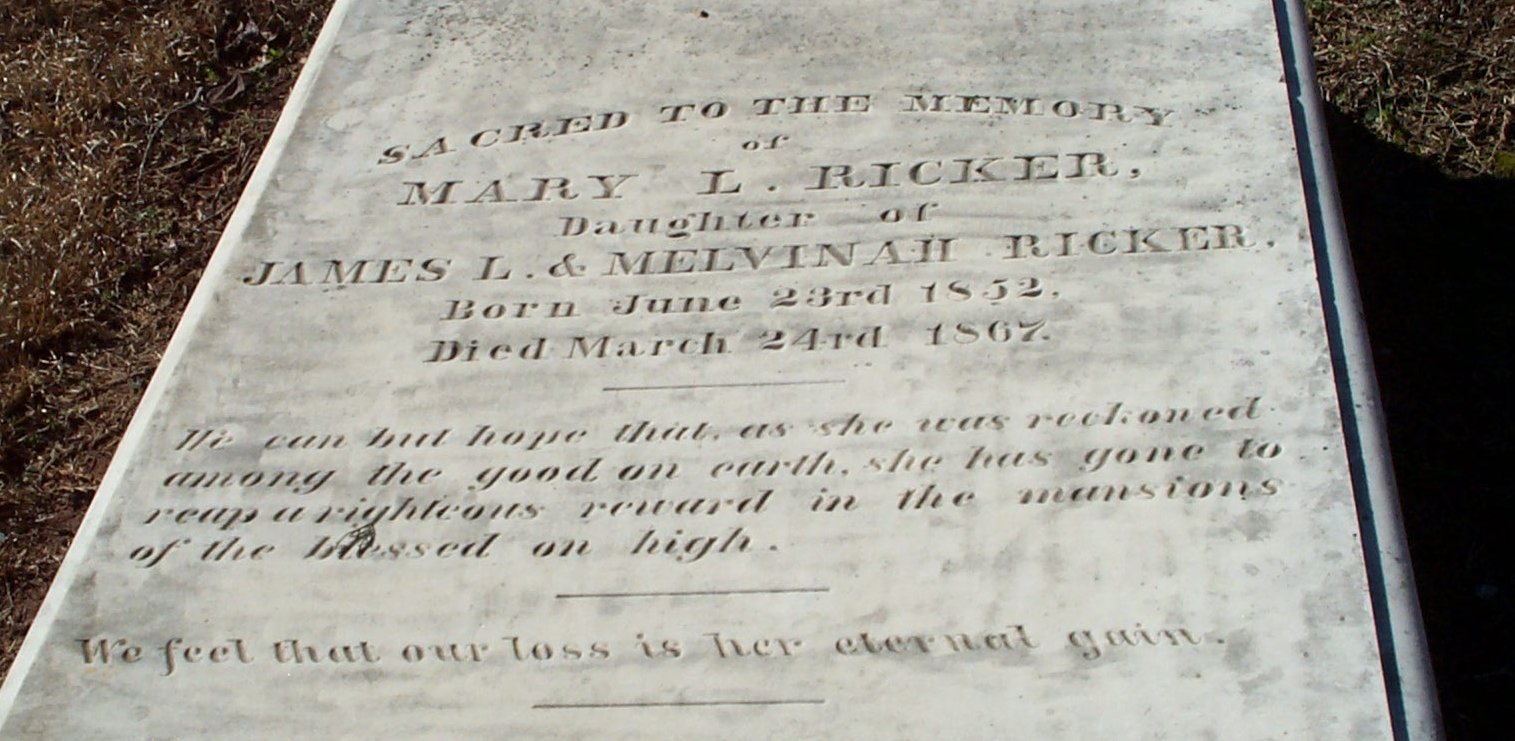 SACRED TO THE MEMORY
of
MARY L. RICKER,
Daughter of
JAMES L. & MELVINAH RICKER.
Born June 23rd 1852.
Died March 24rd 1867.
We can but hope that, as she was reckoned
among the good on earth, she has gone to
reap a righteous reward in the mansions
of the blessed on high.
We feel that our loss is her eternal gain.